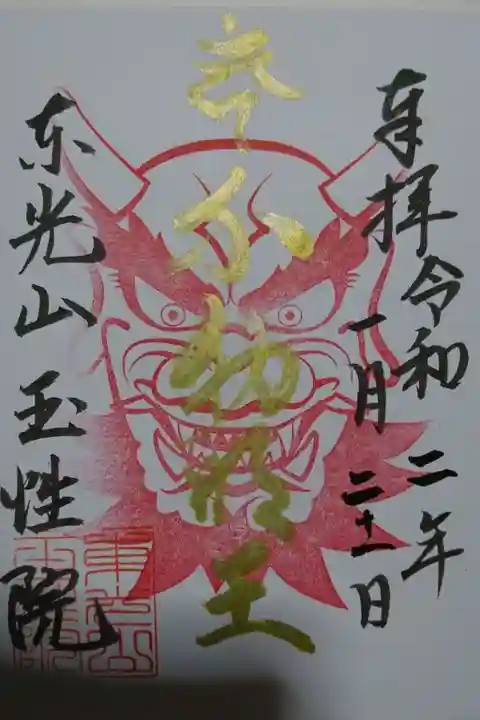 奉拝
令和二年
一月二十一日
不動明王
東光山 玉性院